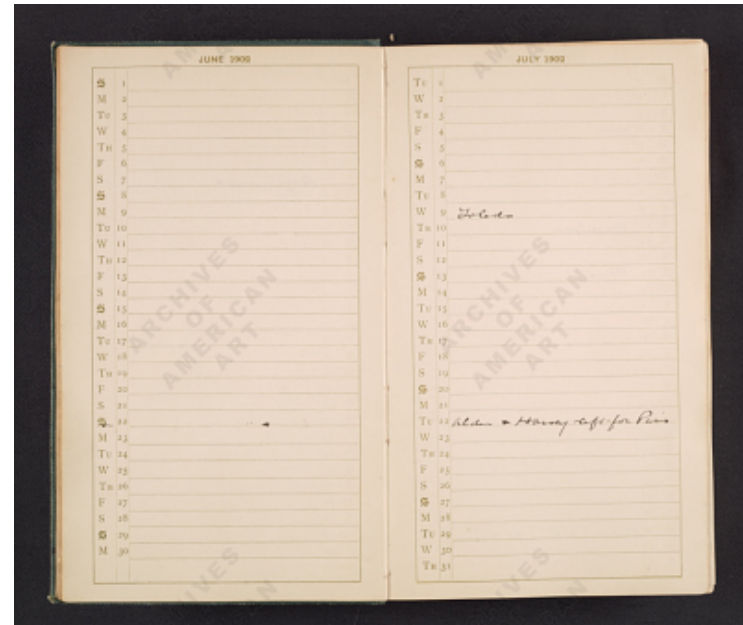 JUNE 1902
S 1
M 2
Tu 3
W 4
Th 5
F 6
S 7
S 8
M 9
Tu 10
W 11
Th 12
F 13
S 14
S 15
M 16
Tu 17
W 18
Th 19
F 20
S 21
S 22
M 23
Tu 24
W 25
Th 26
F 27
S 28
S 29
M 30
JULY 1902
Tu 1
W 2
Th 3
F 4
S 5
S 6
M 7
Tu 8
W 9 Toledo
Th 10
F 11
S 12
S 13
M 14
Tu 15
W 16
Th 17
F 18
S 19
S 20
M 21
Tu 22 & Harvey left for
W 23
Th 24
F 25
S 26
S 27
M 28
Tu 29
W 30
Th 31
ARCHIVES
OF
AMERICAN
ART
ARCHIVES
OF
AMERICAN
ART